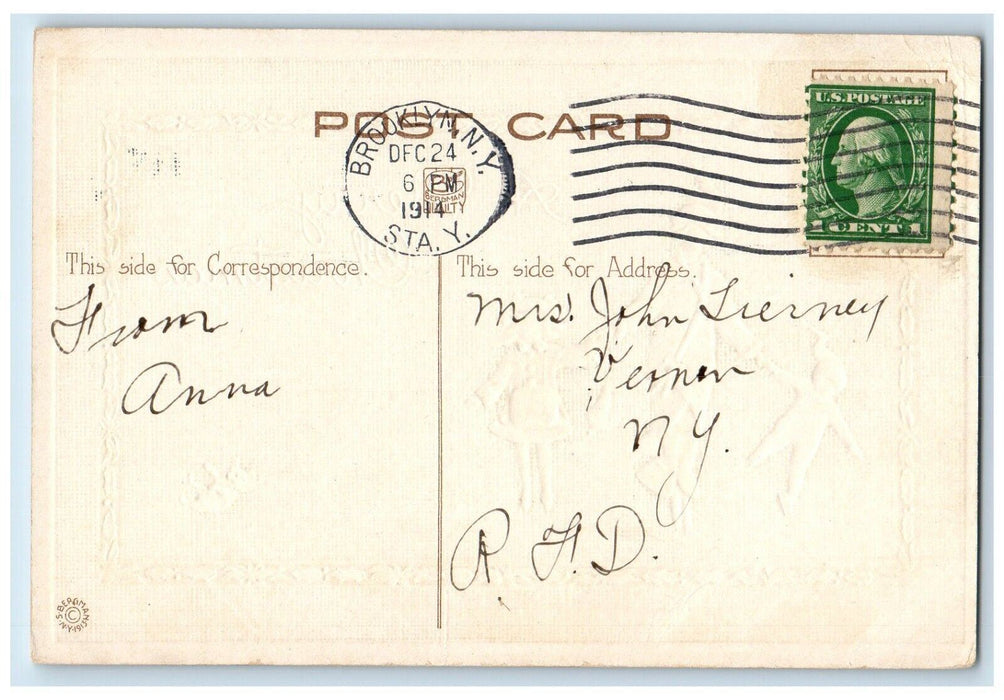 POST CARD
BROOKLYN, N.Y.
DEC 24
6 PM
1914
STA. Y.
BERGMAN
QUALITY
U.S. POSTAGE
1 CENT 1
This side for Correspondence.
From
Anna
This side for Address.
Mrs. John Tierney
Vernon
N Y.
R. F. D.
S. BERGMAN
©
N.Y. 1913